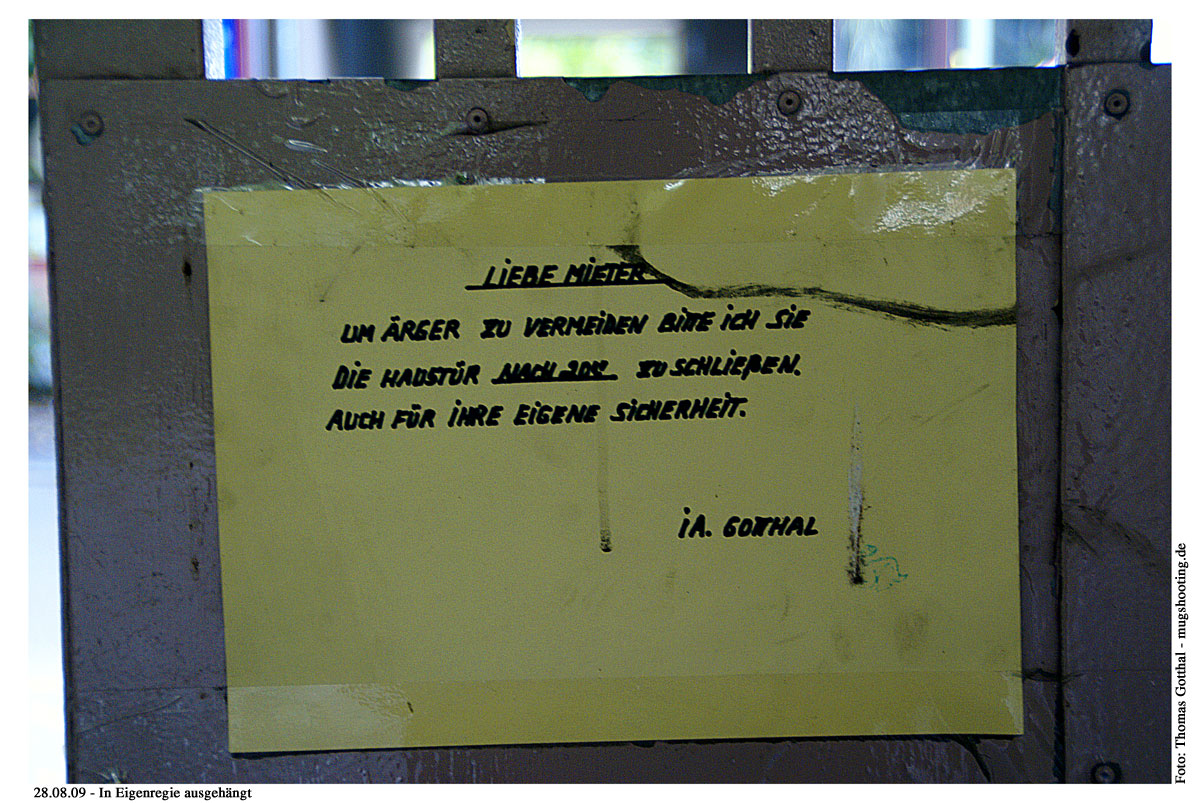 LIEBE MIETER
UM ÄRGER ZU VERMEIDEN BITTE ICH SIE
DIE HAUSTÜR NACH 20°° ZU SCHLIEßEN.
AUCH FÜR IHRE EIGENE SICHERHEIT.
iA. GOTTHAL
28.08.09 - In Eigenregie ausgehängt
Foto: Thomas Gotthal - mugshooting.de